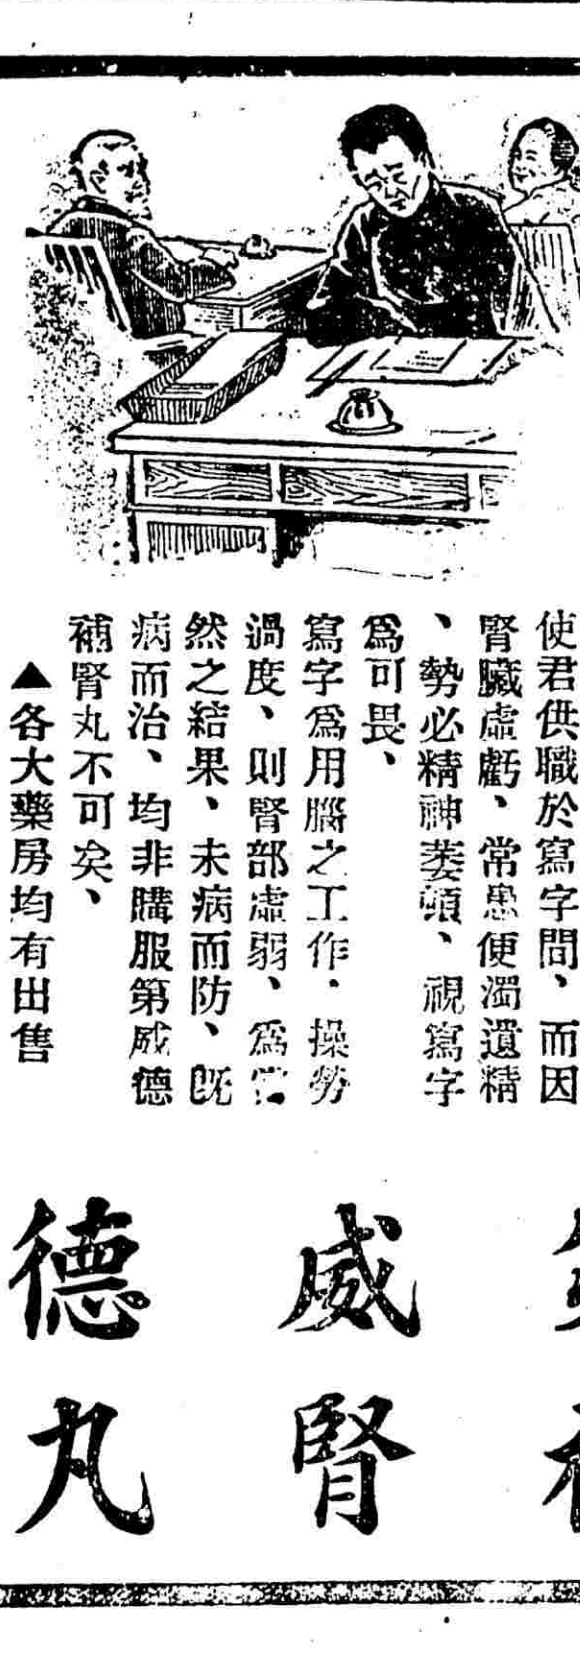 使君供職於寫字間、而因
腎臟虛虧、常患便濁遺精
、勢必精神萎頓、視寫字
爲可畏、
寫字爲用腦之工作．操勞
過度、則腎部虛弱、爲當
然之結果、未病而防、既
病而治、均非購服第威德
補腎丸不可矣、
▲各大藥房均有出售
威德
腎丸